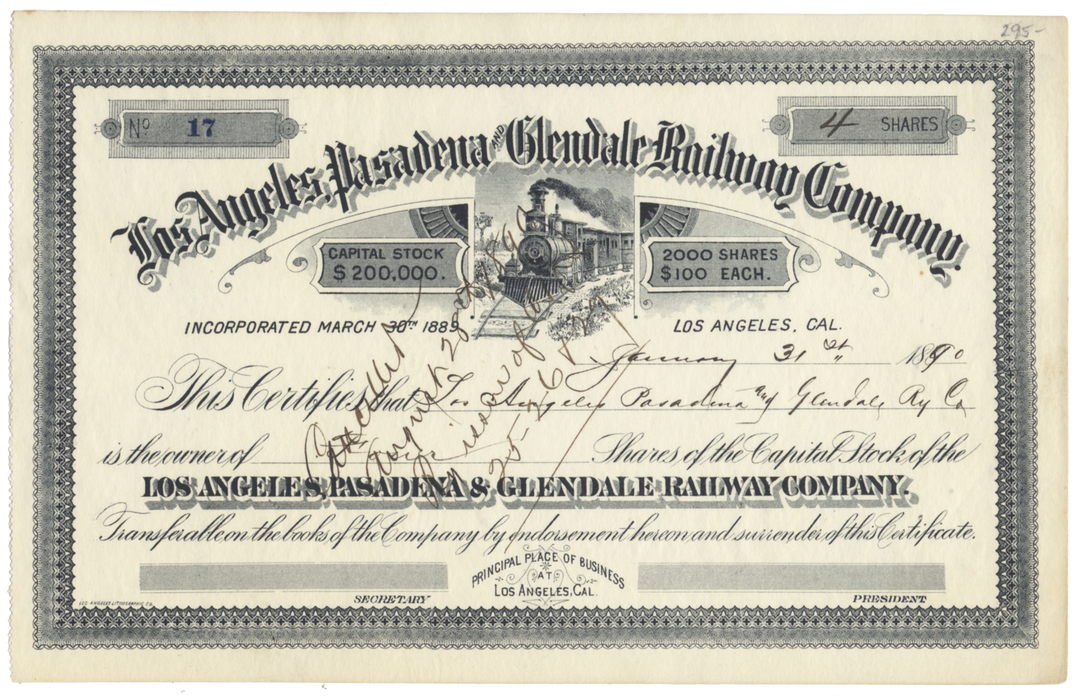 295-
No 17
4 SHARES
Los Angeles, Pasadena AND Glendale Railway Company.
CAPITAL STOCK
$200,000.
2000 SHARES
$100 EACH.
INCORPORATED MARCH 30TH 1889
LOS ANGELES, CAL.
January 31st 1890
This Certifies that Los Angeles Pasadena and Glendale Ry Co
is the owner of Four Shares of the Capital Stock of the
LOS ANGELES, PASADENA & GLENDALE RAILWAY COMPANY.
Transferable on the books of the Company by endorsement hereon and surrender of this Certificate.
Cancelled
August 20th 1890
By issue of
25-26
PRINCIPAL PLACE OF BUSINESS
AT
LOS ANGELES, CAL.
SECRETARY
PRESIDENT
LOS ANGELES LITHOGRAPHIC CO.